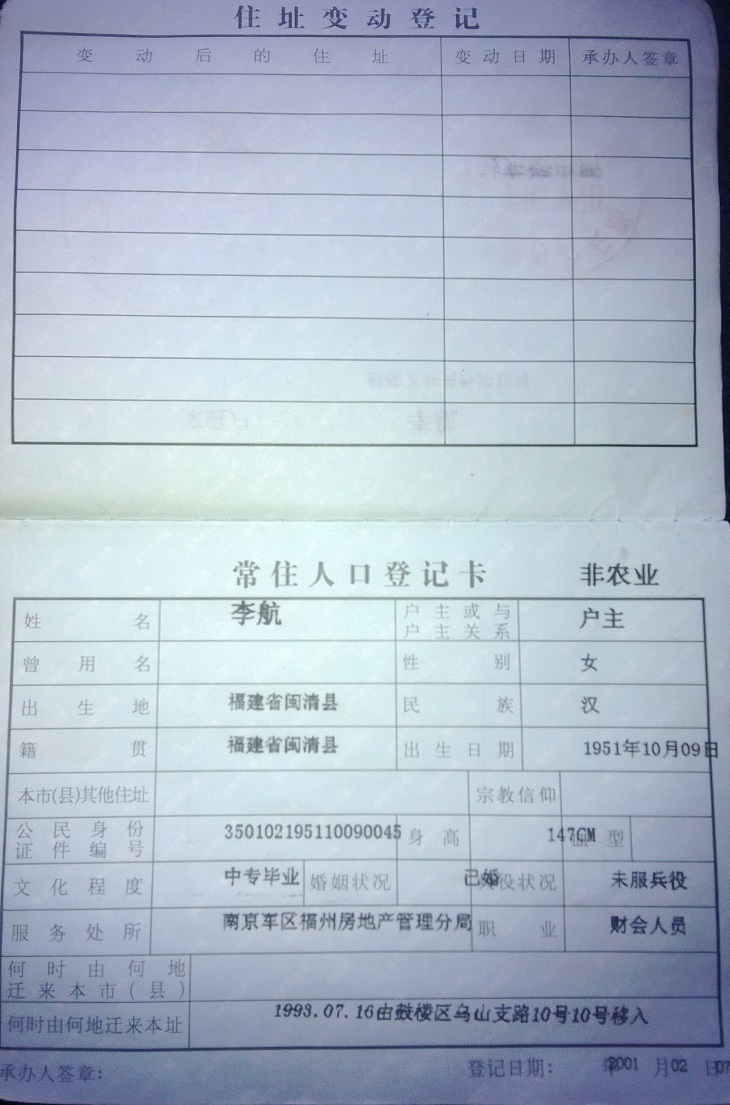 住址变动登记
变动后的住址 变动日期 承办人签章
常住人口登记卡 非农业
姓名 李航 户主或与户主关系 户主
曾用名 性别 女
出生地 福建省闽清县 民族 汉
籍贯 福建省闽清县 出生日期 1951年10月09日
本市(县)其他住址 宗教信仰
公民身份证件编号 350102195110090045 身高 147CM 型
文化程度 中专毕业 婚姻状况 已婚 役状况 未服兵役
服务处所 南京车区福州房地产管理分局 职业 财会人员
何时由何地迁来本市(县)
何时由何地迁来本址 1993.07.16由鼓楼区乌山支路10号10号移入
承办人签章: 登记日期: 2001年 02月 07日